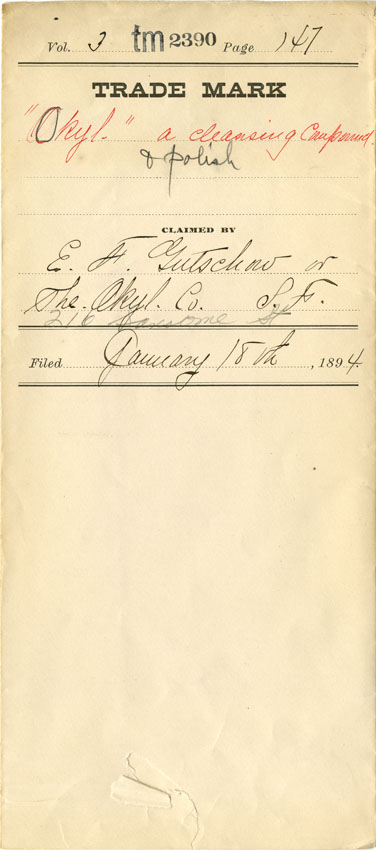 Vol. 3 tm 2390 Page 147
TRADE MARK
"Okyl." a cleansing Compound
& polish
CLAIMED BY
E. F. Gutschow or
The Okyl. Co. S. F.
216 Sansome St
Filed January 18th, 1894.